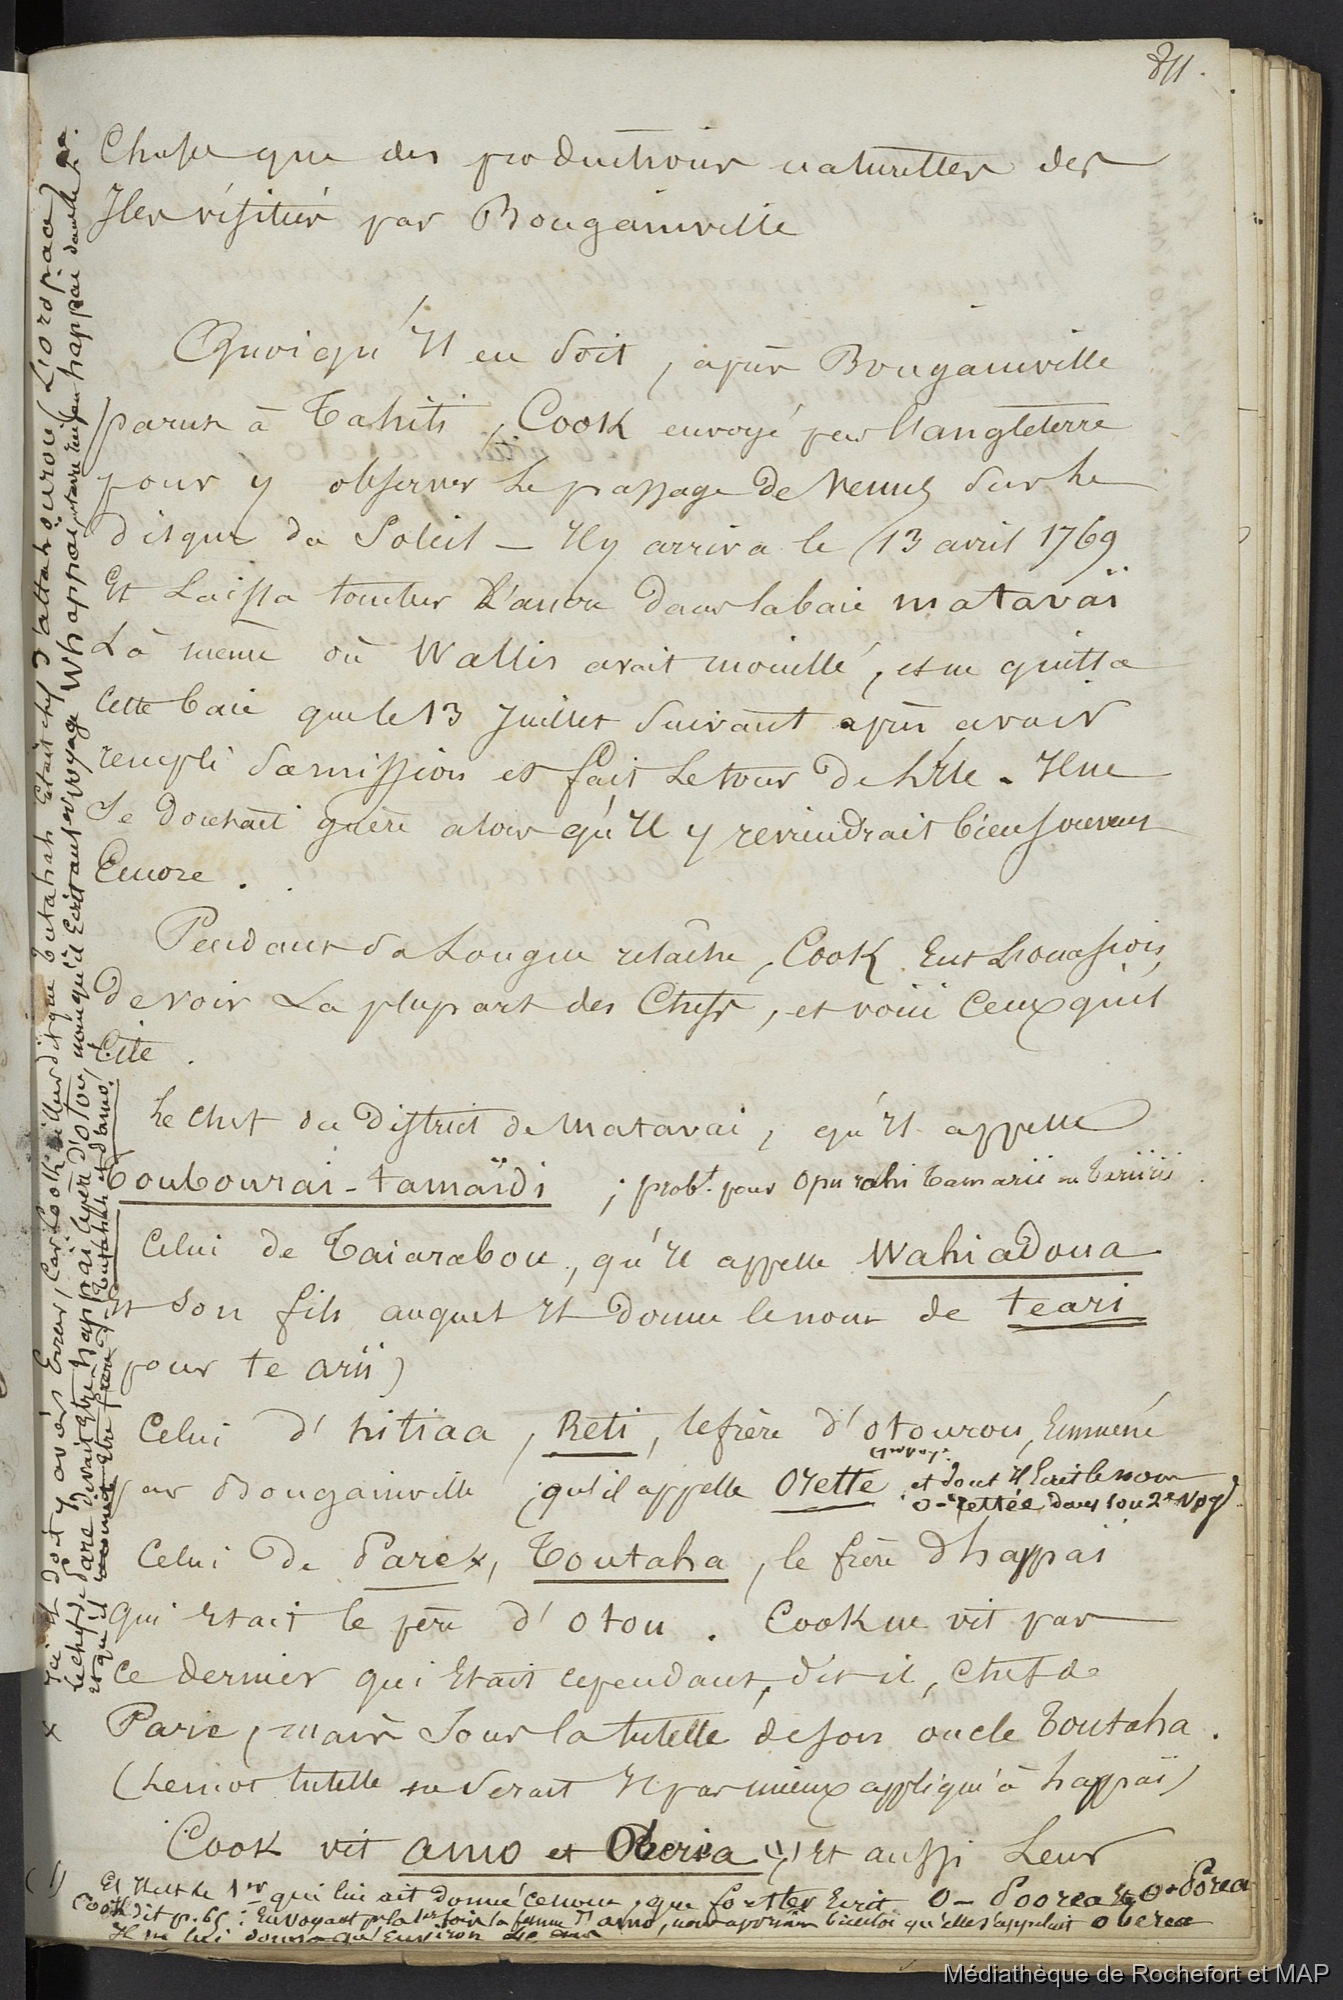 811.
Chose que des productions naturelles des
Iles visitées par Bougainville
Quoiqu'Il en Soit, après Bougainville
parut à Tahiti, Cook envoyé par l'angleterre
pour y observer le passage de Venus sur le
disque du Soleil — Il y arriva le 13 avril 1769
Et Laissa tomber L'ancre dans la baie matavaï
Là même où Wallis avait mouillé, et ne quitta
Cette baie que le 13 Juillet Suivant après avoir
rempli Sa mission et fait le tour de L'Ile. Il ne
Se doutait guère alors qu'Il y reviendrait bien souvent
Encore.
Pendant Sa Longue relâche, Cook Eut L'occasion
de voir La plupart des Chefs, et voici Ceux qu'il
Cite.
Le Chef du District de Matavai, qu'Il appelle
Toubourai-tamaïdi ; probt. pour Opu rahi Tamarii ou Tariirii
Celui de Taiarabou, qu'Il appelle Wahiadoua
et Son fils auquel Il donne le nom de teari
pour te arii)
Celui d'hitiaa, Reti, le frère d'Otourou, Emmené
par Bougainville (qu'il appelle Orette et dont Il Ecrit le nom
(1er voy.
O-rettée dans Son 2e Voy)
Celui de Parex, Toutaha, le frère d'happai
qui Etait le père d'Otou. Cook ne vit pas
Ce dernier qui Etait cependant, dit-il, Chef de
Pare, mais Sous la tutelle de son oncle Toutaha.
(Le mot tutelle ne Serait Il pas mieux appliqué à happaï)
Cook vit amo et Oberea (1) Et aussi Leur
(1) Et Il est le 1er qui lui ait donné ce nom, que forster Ecrit O-Poorea et O-Pórea
Cook dit p. 65 : Envoyant pr la 1er fois la femme d'amo, nous apprîmes bientôt qu'elle s'appelait Oberea
Il ne lui donna qu'Environ 40 ans
x Ici Il doit y avoir Erreur, Car Cook ailleurs dit que Tutahah était chef d'attahourou (L'oropaa)
le chef de Pare devait être happai le père d'Otou, nom qu'il Ecrit au 1er voyage Whappai
et qu'il nomme Etre frère de Tutahah et d'amo.